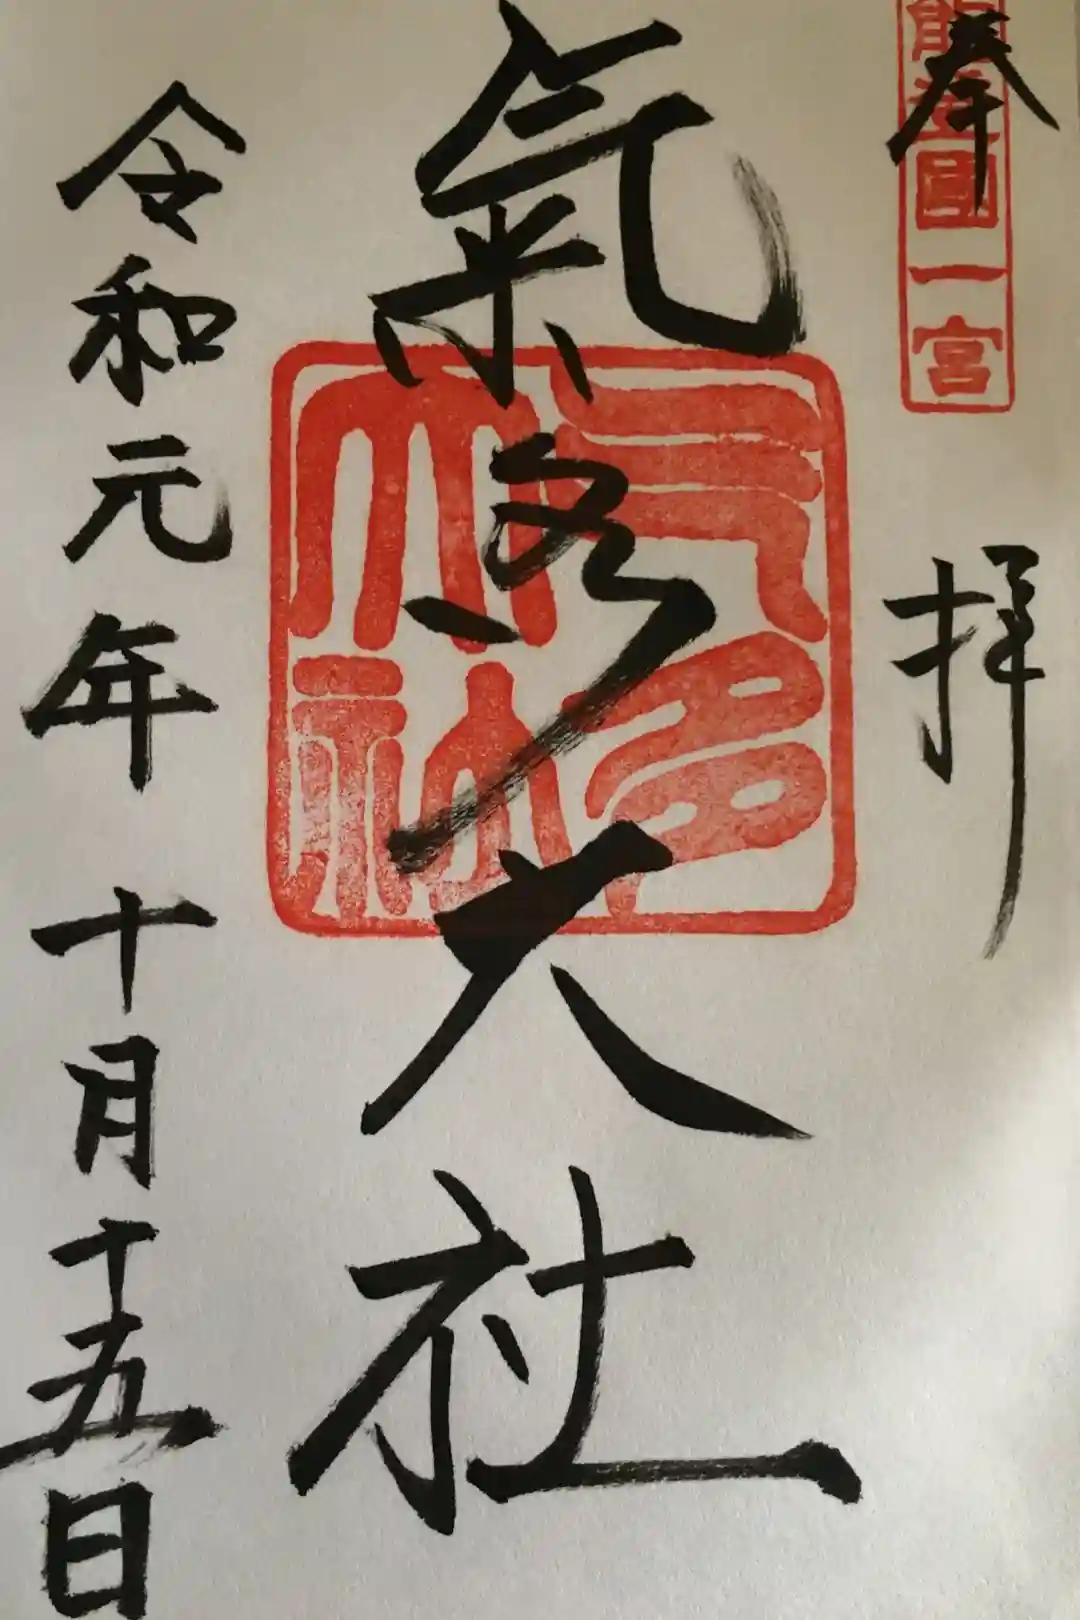 奉拝
能登國一宮
氣多大社
気多大社
令和元年十月十五日